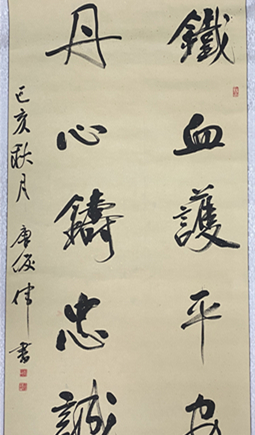 鐵血護平安
丹心鑄忠誠
己亥秋月 唐俊偉書